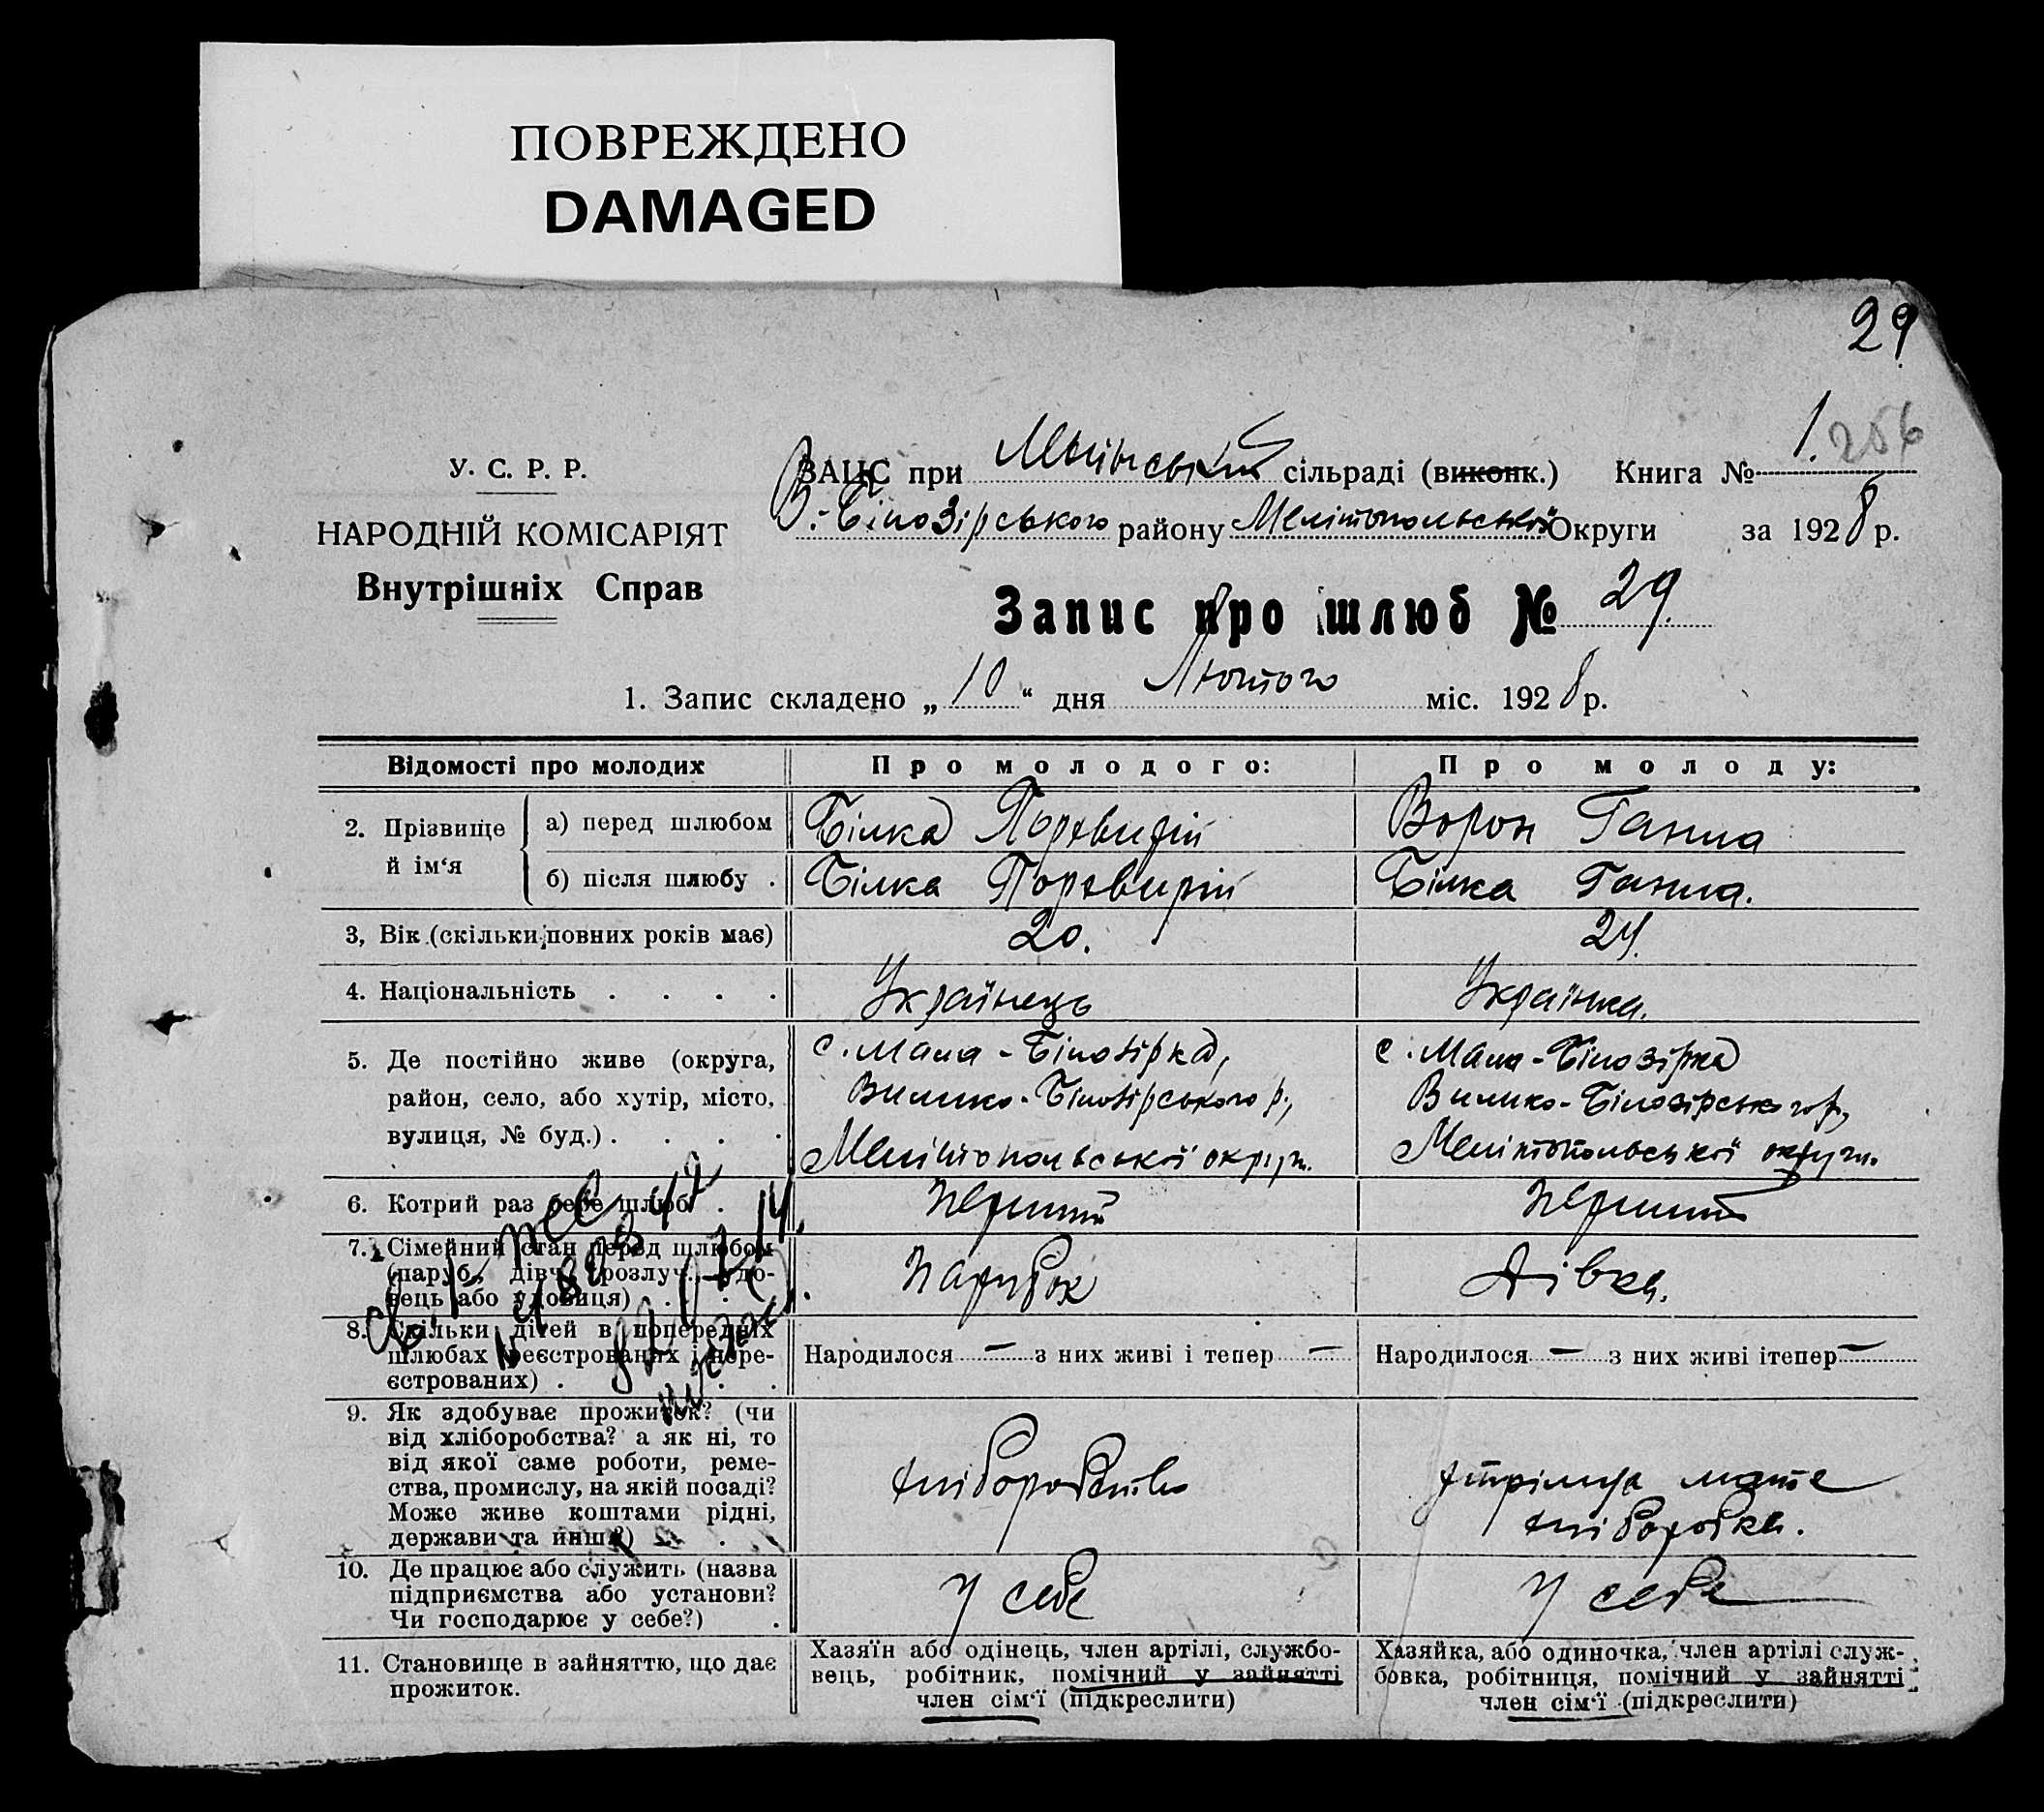 ПОВРЕЖДЕНО
DAMAGED
29
1. 256
У. С. Р. Р.
ЗАЦС при сільраді (виконк.) Книга №
В.-Білозірського району Мелітопольської Округи за 1928 р.
НАРОДНІЙ КОМІСАРІЯТ
Внутрішніх Справ
Запис про шлюб № 29.
1. Запис складено „ 10 “ дня Лютого міс. 1928 р.
Відомості про молодих
Про молодого:
Про молоду:
2. Прізвище й ім‘я
а) перед шлюбом
Білка Порфирій
Ворон Ганна
б) після шлюбу .
Білка Порфирій
Білка Ганна.
3, Вік (скільки повних років має)
20.
24.
4. Національність . . . .
Українець
Українка.
5. Де постійно живе (округа,
район, село, або хутір, місто,
вулиця, № буд.) . . . .
с. Мала-Білозірка,
Велико-Білозірського р.,
Мелітопольської округи.
с. Мала-Білозірка
Велико-Білозірського р.,
Мелітопольської округи.
6. Котрий раз бере шлюб .
перший
перший
7. Сімейний стан перед шлюбом
(паруб., дівч., розлуч., удо-
вець або удовиця) . . .
парубок
дівка.
8. Скільки дітей в попередніх
шлюбах (реєстрованих і нере-
єстрованих) . . .
Народилося — з них живі і тепер —
Народилося — з них живі ітепер —
9. Як здобуває прожиток? (чи
від хліборобства? а як ні, то
від якої саме роботи, реме-
ства, промислу, на якій посаді?
Може живе коштами рідні,
держави та инш.?) . .
хліборобство
хліборобка.
10. Де працює або служить (назва
підприємства або установи?
Чи господарює у себе?) .
у себе
у себе
11. Становище в зайняттю, що дає
прожиток.
Хазяїн або одінець, член артілі, службо-
вець, робітник, помічний у зайнятті
член сім‘ї (підкреслити)
Хазяйка, або одиночка, член артілі служ-
бовка, робітниця, помічний у зайнятті
член сім‘ї (підкреслити)